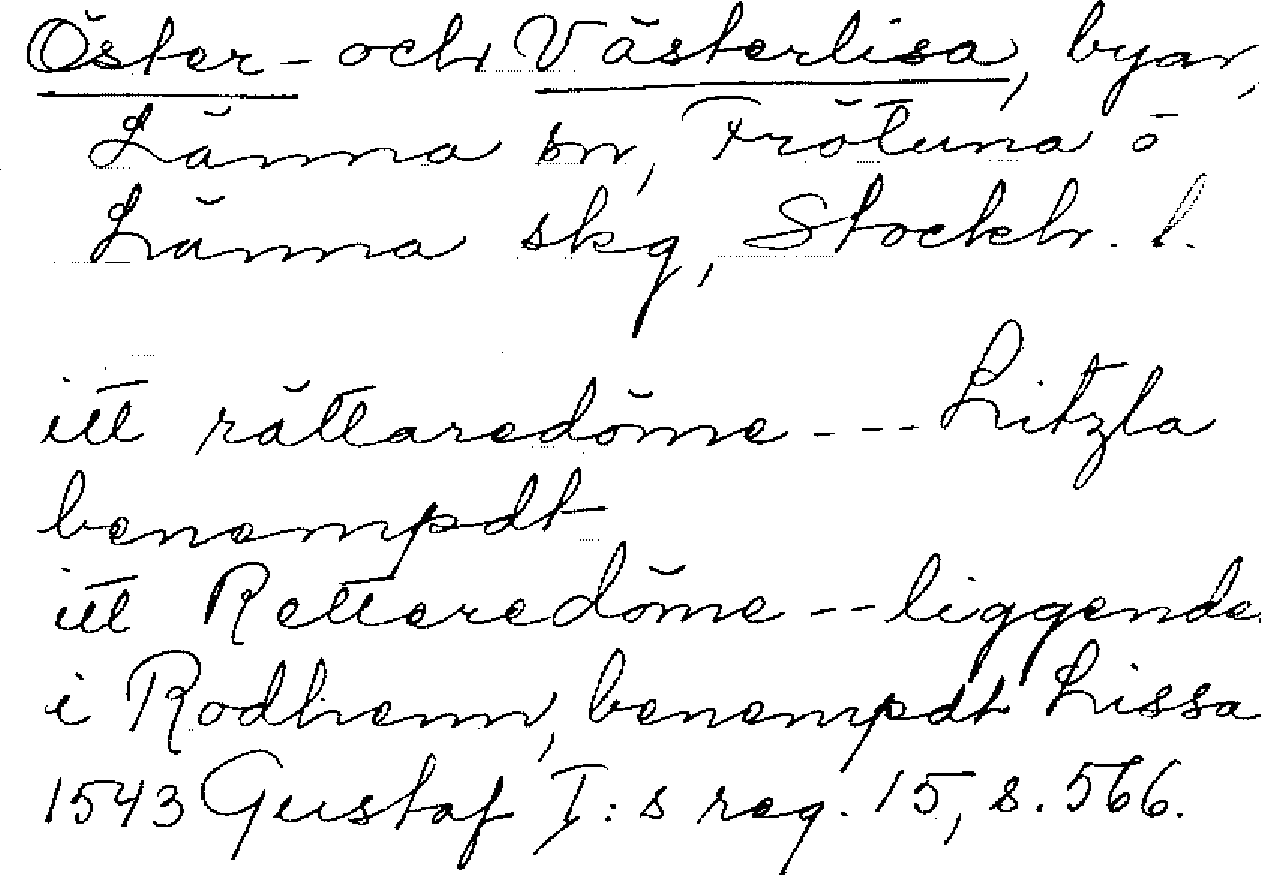 Öster- och Västerlisa, byar,
Länna sn, Frötuna o
Länna skg, Stockh. l.
itt rättaredöme --- Litzla
benempdt
itt Rettaredöme -- liggende
i Rodhenn, benempdt Lissa
1543 Gustaf I:s reg. 15, s. 566.